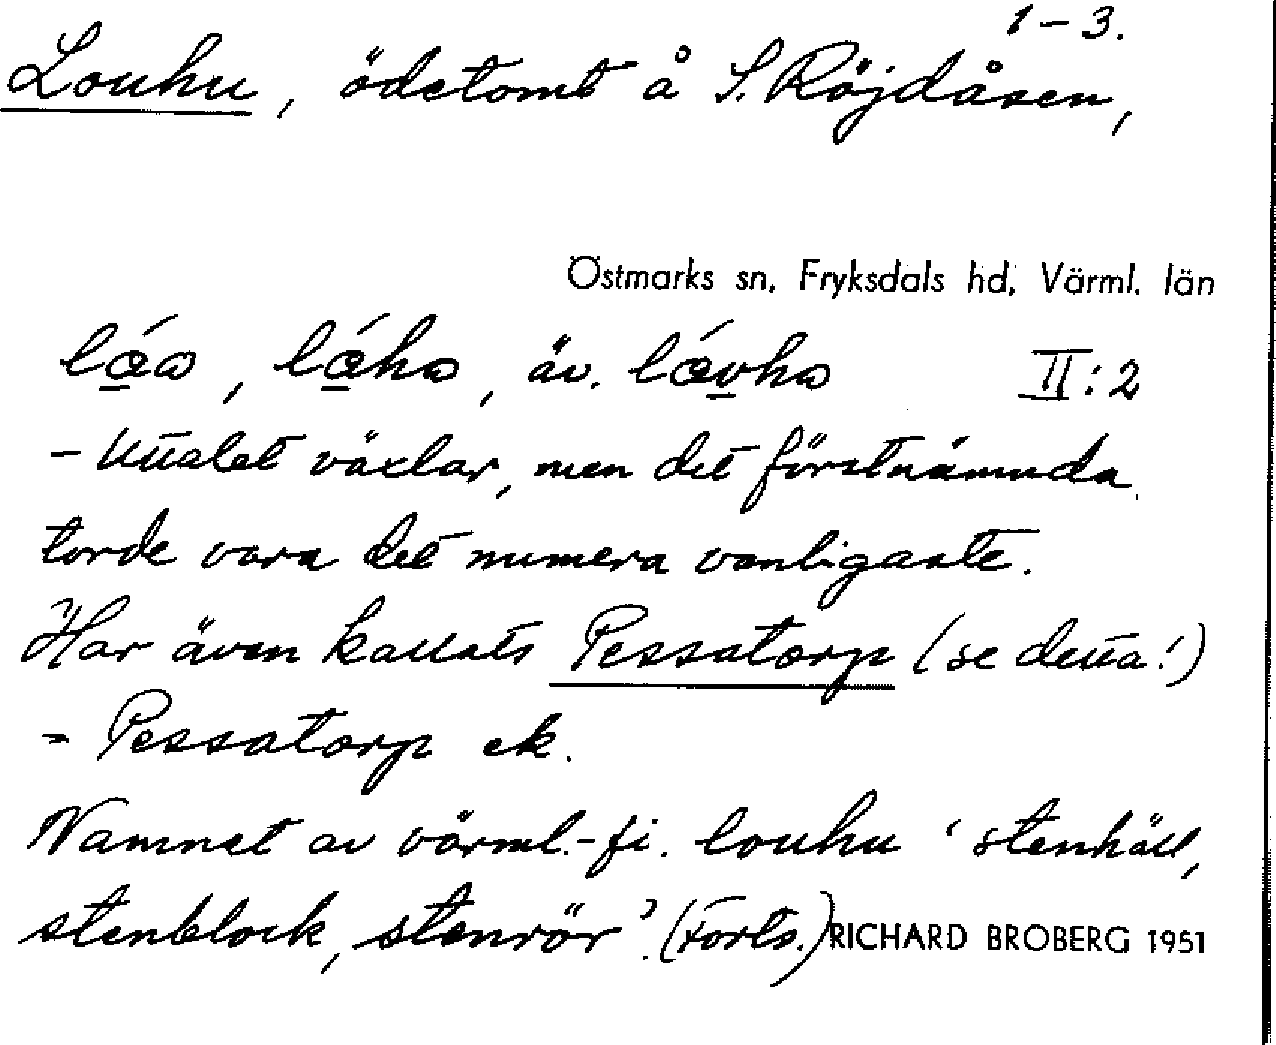 1-3.
Louhu, ödetomt å S. Röjdåsen,
Östmarks sn, Fryksdals hd, Värml. län
lǽω, lǽhω, äv. lǽvhω II:2
- Uttalet växlar, men det förstnämnda
torde vara det numera vanligaste.
Har även kallats Pessatorp (se detta!)
= Pessatorp ek.
Namnet av värml.-fi. louhu 'stenhäll,
stenblock, stenrör'. (Forts.) RICHARD BROBERG 1951